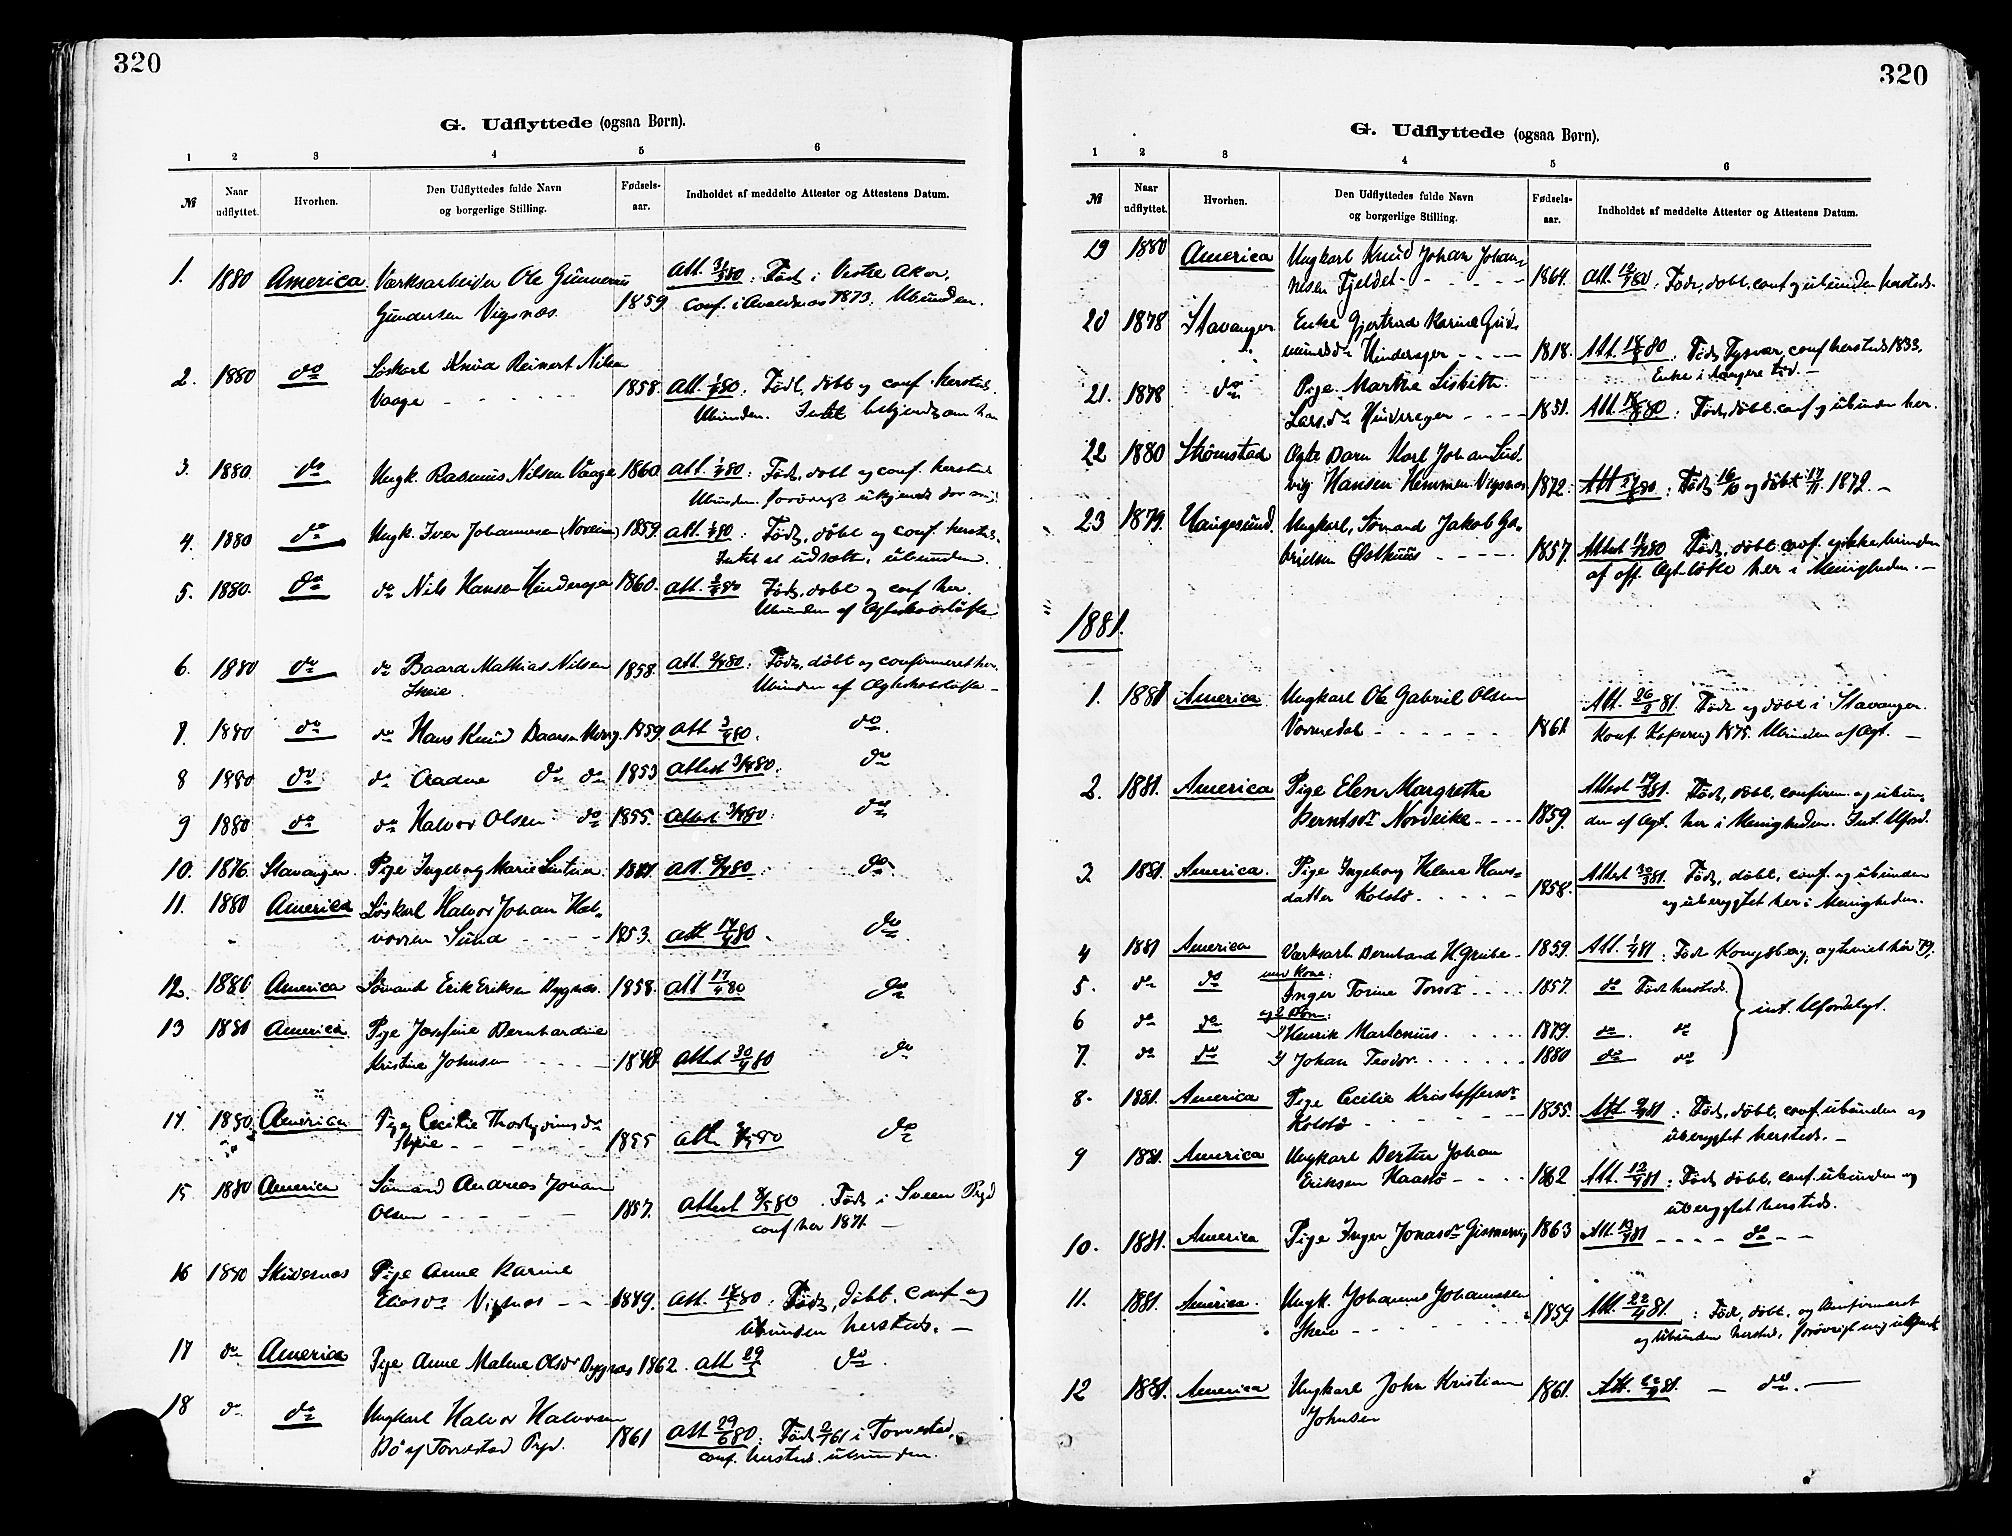 320
G. Udflyttede (ogsaa Børn).
1 2 3 4 5 6
№ Naar udflyttet. Hvorhen. Den Udflyttedes fulde Navn og borgerlige Stilling. Fødsels-aar. Indholdet af meddelte Attester og Attestens Datum.
1. 1880 America Værksarbeider Ole Gunnerius
Gundersen Vigsnæs. 1859 Att. 31/3 80: Født i Vestre Aker,
conf. i Avaldsnæs 1873. Ubunden.
2. 1880 do Løskarl Knud Reinert Nilsen
Vaage - - - 1858. Att. 1/4 80. Født, døbt og conf. hersteds.
Ubunden. Intet bekjendt om ham
3. 1880 do Ungk. Rasmus Nilsen Vaage 1860 Att. 1/4 80: Født, døbt og conf. hersteds
Ubunden. forøvrigt ukjendt
4. 1880 do Ungk. Iver Johannesen 1859. Att. 1/4 80: Født, døbt og conf. hersteds.
Intet at udsætte. ubunden.
5. 1880. do do Nils Hansen Hinderager 1860. Att. 2/4 80 Født, døbt og conf her.
Ubunden af Ægteskabsløfte
6. 1880 do do Baard Mathias Nilsen
Skeie 1858. Att. 2/4 80: Født, døbt og confirmeret her.
Ubunden af Ægteskabsløfte -
7. 1880 do do Hans Knud Baarsen 1859 Att 3/4 80. do.
8 1880 do do Aadne do do 1853 Attest 3/4 80: do
9 1880 do do Halvor Olsen do 1855. Attest 3/4 80: do
10. 1876. Stavanger. Pige Ingeborg Marie Att. 8/4 80. do
11. 1880 America Løskarl Halvor Johan Hal-
vorsen Sund - - - 1853. Att. 14/4 80. do
12. 1880 America Sømand Erik Eriksen Bygnæs. 1858. Att 17/4 80 do
13 1880 America Pige Josefine Bernhardine
Kristine Johnsen - - - 1848 Attest 30/4 80 do
14. 1880. America Pige Cecilie
Skeie - - - 1855 Att. 3/5 80 do
15 1880 America Sømand Andreas Johan
Olsen - - - 1857. Attest 8/5 80. Født i Sveen Pgd
conf her 1871. -
16 1880 Skudesnæs Pige Anne Karine
Vigsnæs - - 1849. Att. 18/5 80: Født, døbt, conf og
ubunden hersteds. -
17 do America Pige Anne Malene Olsdr Bygnæs 1862. Att 29/5 do.
18 do do Ungkarl Halvor Halvorsen
Bø af Torvestad Pgd. 1861 Att 29/6 80: Født 2/1 61 i Torvestad,
conf. hersteds. ubunden.
320
G. Udflyttede (ogsaa Børn).
1 2 3 4 5 6
№ Naar udflyttet. Hvorhen. Den Udflyttedes fulde Navn og borgerlige Stilling. Fødsels-aar. Indholdet af meddelte Attester og Attestens Datum.
19 1880 America Ungkarl Knud Johan Johan-
nesen Fjeldet - - - 1864. Att. 80. Født, døbt, conf og ubunden hersteds.
20 1878 Stavanger Enke Gjertrud Karine Gud-
mundsdr Hinderager - - - 1818. Att. 18/8 80: Født Tysvær, conf hersteds 1833.
Enke i længere tid. -
21. 1878 do Pige Marthe Lisbeth
Larsdr Hinderager - - - 1851. Att. 18/8 80: Født, døbt, conf og ubunden her.
22 1880 Strömstad Ægte Barn Karl Johan Lud-
vig Hansen Hemmen Vigsnæs 1872: Att 80: Født 16/10 og døbt 17/11 1872. -
23 1879. Haugesund. Ungkarl, Sømand Jakob Ga-
brielsen Østhuus - - - 1857. Attest 80 Født, døbt, conf. og ikke bunden
af off. Ægt. løfte her i Menigheden. -
1881.
1. 1881 America Ungkarl Ole Gabriel Olsen
Vormedal - - - 1861. Att. 26/2 81. Født og døbt i Stavanger.
Konf. Kopervig 1875. Ubunden af Ægt. -
2. 1881. America Pige Elen Margrethe
Berntsdr Nordeike - - - 1859. Attest 19/3 81. Født, døbt, confirm. og ubun-
den af Ægt. her i Menigheden. Int. Uford.
3. 1881. America. Pige Ingeborg Helene Hans-
datter Kolstø - - - 1858. Attest 30/3 81. Født, døbt, conf. og ubunden
og uberygtet her i Menigheden.
4 1881 America Værksarb. Bernhard H. Grube - 1859. Att. 1/4 81: Født Kongsberg, og her 79.
5. do do med Kone: Inger Torine - - - 1857. do Født hersteds.
6 do do og 2 Børn: 1) Henrik Martenius - - - 1879. do do
7. do do 2) Johan Teodor - - - 1880 do do
int. Ufordelagt.
8. 1881. America Pige Cecilie Kristoffersdr
Kolstø - - - 1855. Att. 9/4 81: Født, døbt, conf. ubunden og
uberygtet hersteds. -
9 1881. America Ungkarl Johan
Eriksen - - - 1862 Att. 12/4 81: Født, døbt, conf. ubunden og
uberygtet hersteds.
10. 1881. America Pige Inger Jonasdr Gismervig 1863 Att. 19/4 81 - - - do - -
11. 1881. America. Ungk. Johannes Johannessen
Skeie - - - 1859 Att. 22/4 81.: Født, døbt, og konfirmeret
og ubunden hersteds, forøvrigt mig ubekjendt
12 1881. America Ungkarl John Kristian
Johnsen 1861. Att. 22/4 81. - do. -